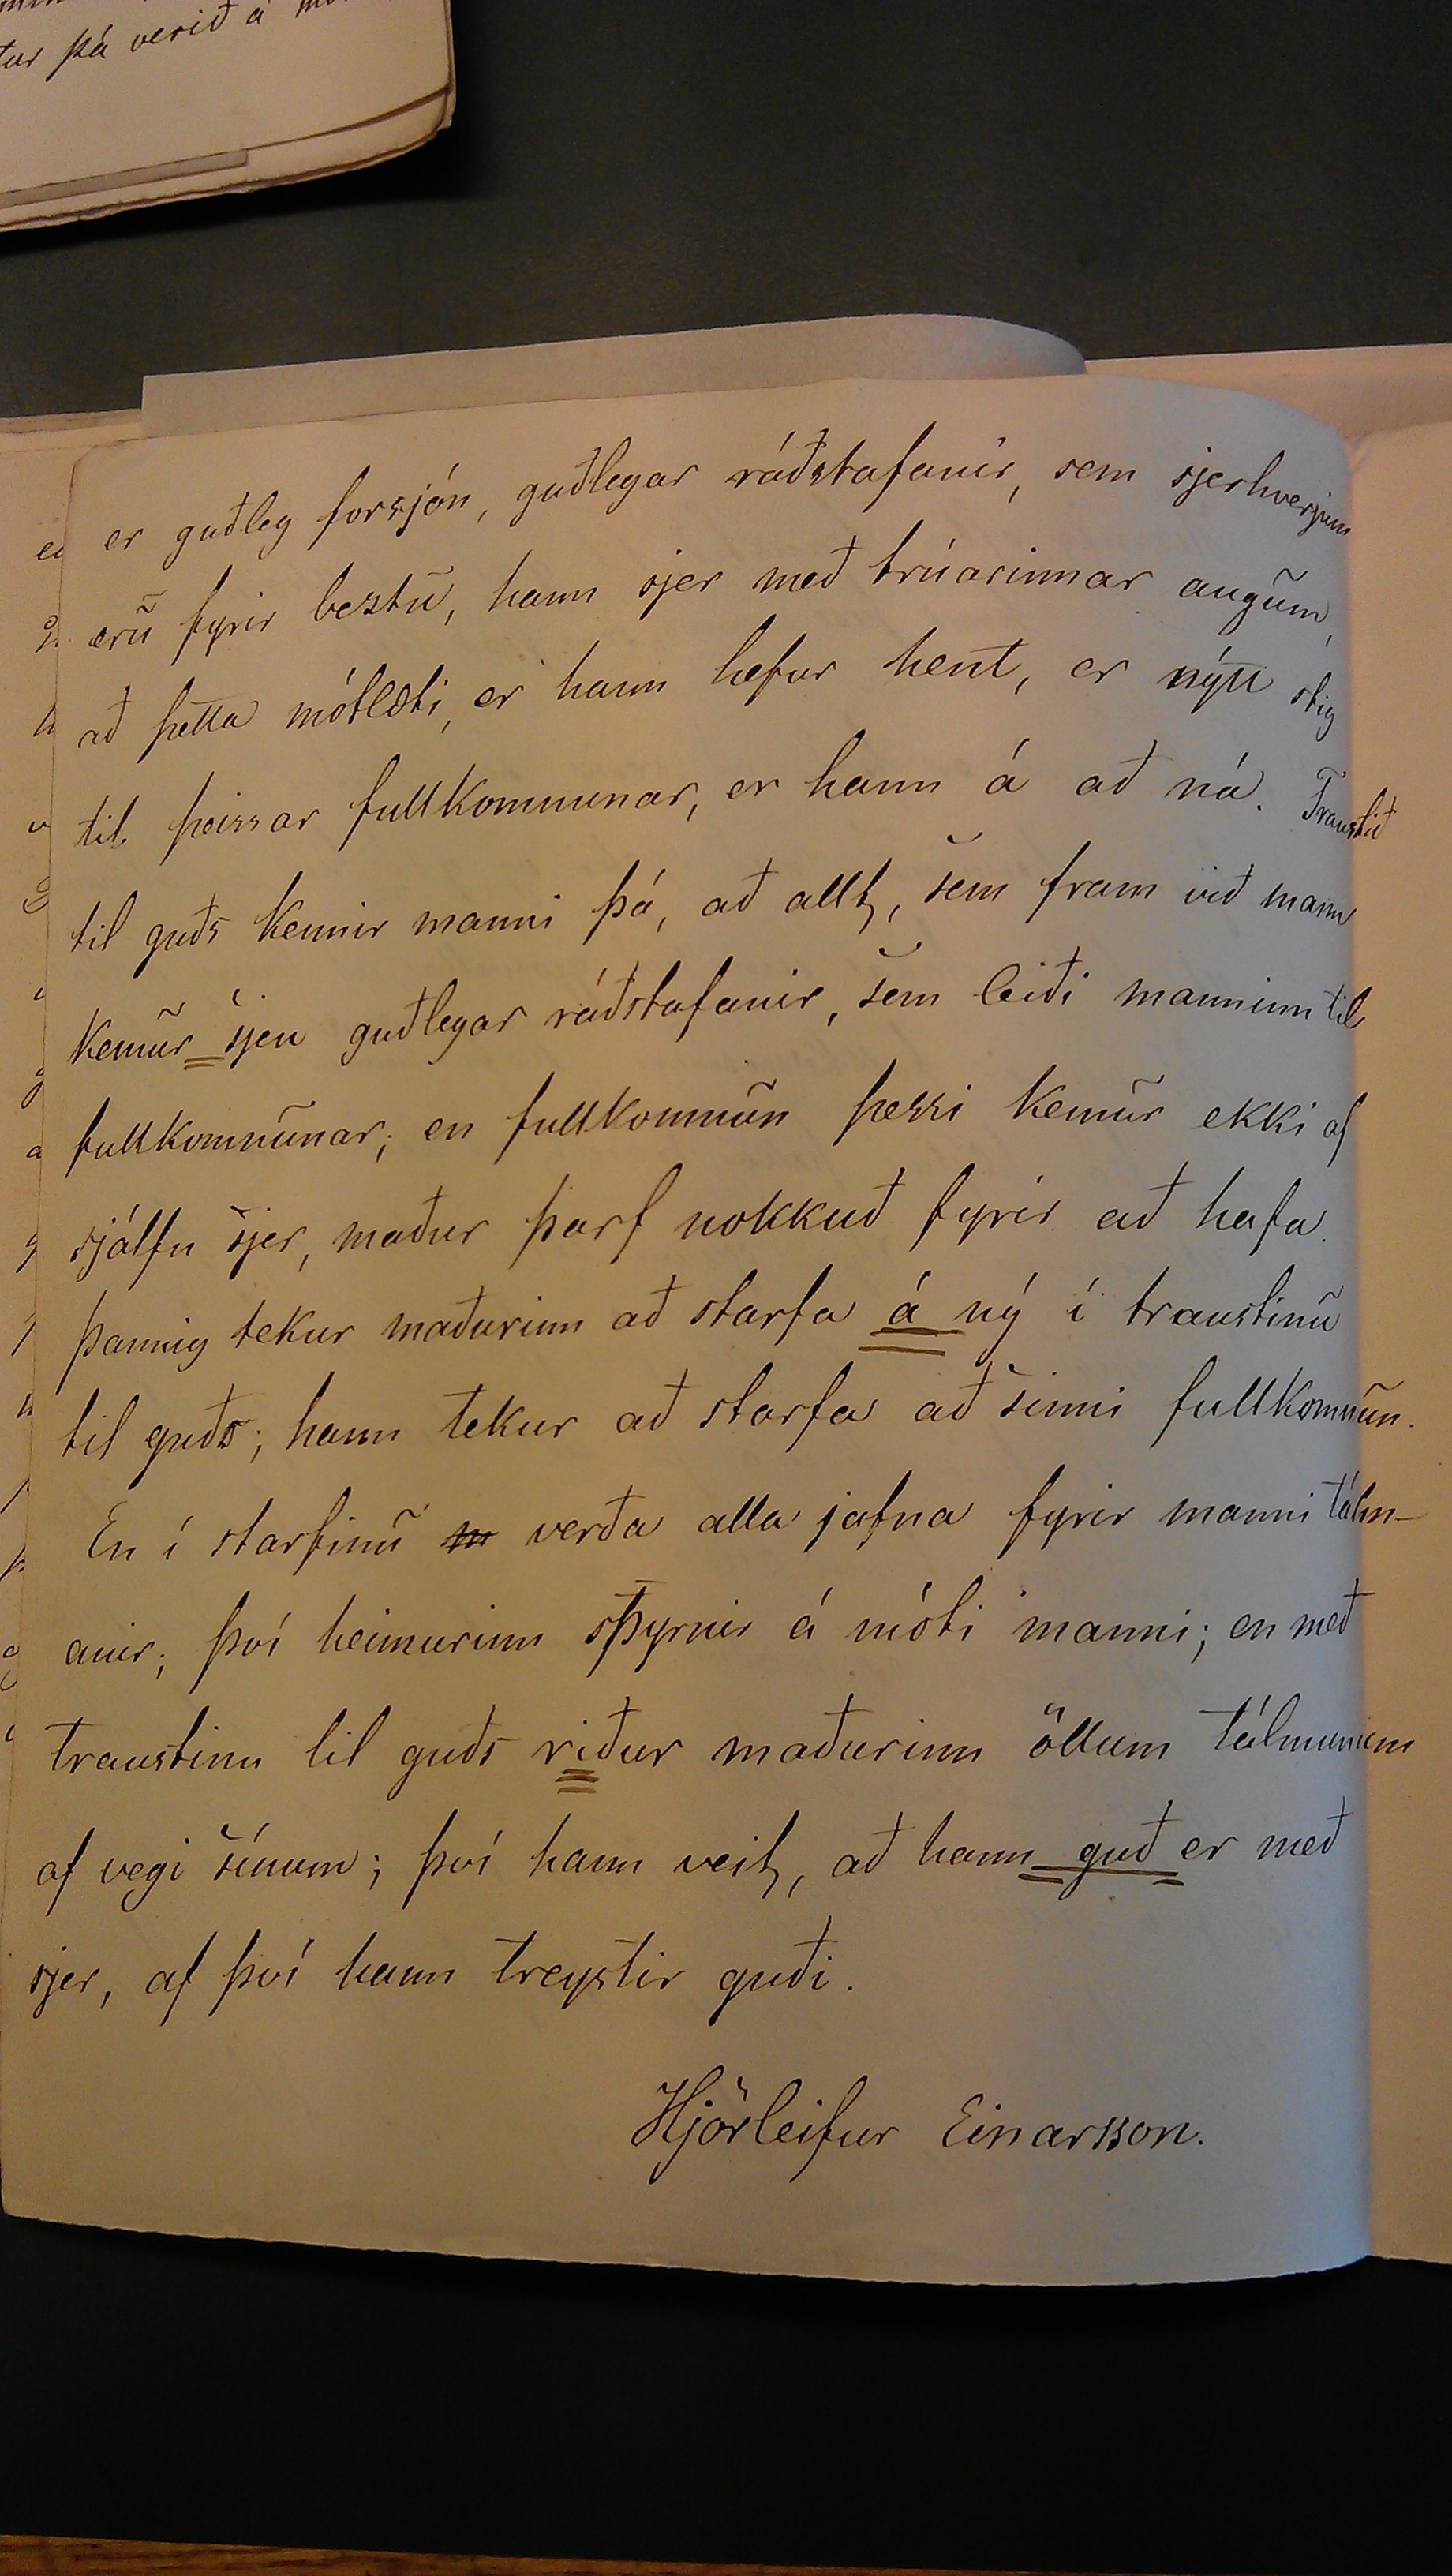 þá verið á
er guðleg forsjón, guðlegar ráðstafanir, sem sjerhverjum
erū fyrir beztū, hann sjer með trúarinnar augūm,
að þetta mótlæti, er hann hefur hent, er nýtt stig
til þeirrar fullkommunar, er hann á að ná. Traustið
til guðs kennir manni þá, að allt, sem fram við mann
kemūr sjeu guðlegar ráðstafanir, sem leiði manninn til
fullkomnūnar; en fullkomnūn þessi kemūr ekki af
sjálfu sjer, maður þarf nokkuð fyrir að hafa.
Þannig tekur maðurinn að starfa á ný í traustinū
til guðs; hann tekur að starfa að sinni fullkomnūn.
En í starfinū verða alla jafna fyrir manni tálm-
anir; því heimurinn spyrnir á móti manni; en með
traustinu til guðs riður maðurinn öllum tálmunum
af vegi sínum; því hann veit, að hann guð er með
sjer, af því hann treystir guði.
Hjörleifur Einarsson.